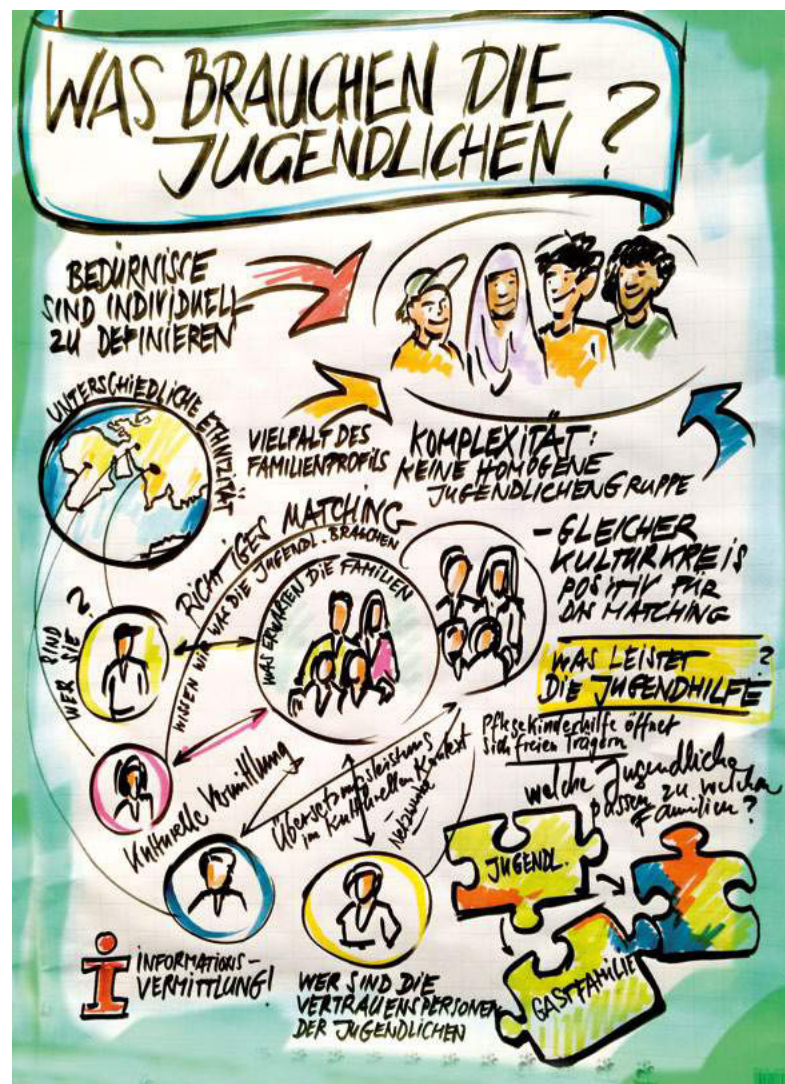 WAS BRAUCHEN DIE
JUGENDLICHEN ?
BEDÜRNISSE
SIND INDIVIDUELL
ZU DEFINIEREN
UNTERSCHIEDLICHE ETHNIZITÄT
VIELFALT DES
FAMILIENPROFILS
KOMPLEXITÄT:
KEINE HOMOGENE
JUGENDLICHENGRUPPE
- GLEICHER
KULTURKREIS
POSITIV FÜR
DAS MATCHING
RICHTIGES MATCHING
WISSEN WIR WAS DIE JUGENDL. BRAUCHEN
WAS ERWARTEN DIE FAMILIEN
WER SIND SIE?
WAS LEISTET
DIE JUGENDHILFE?
Pflegekinderhilfe öffnet
sich freien Trägern
welche Jugendliche
passen zu welchen
Familien?
Kulturelle Vermittlung
Übersetzungsleistung
im kulturellen Kontext
- Netzwerke
JUGENDL.
GASTFAMILIE
i INFORMATIONS-
VERMITTLUNG!
WER SIND DIE
VERTRAUENSPERSONEN
DER JUGENDLICHEN